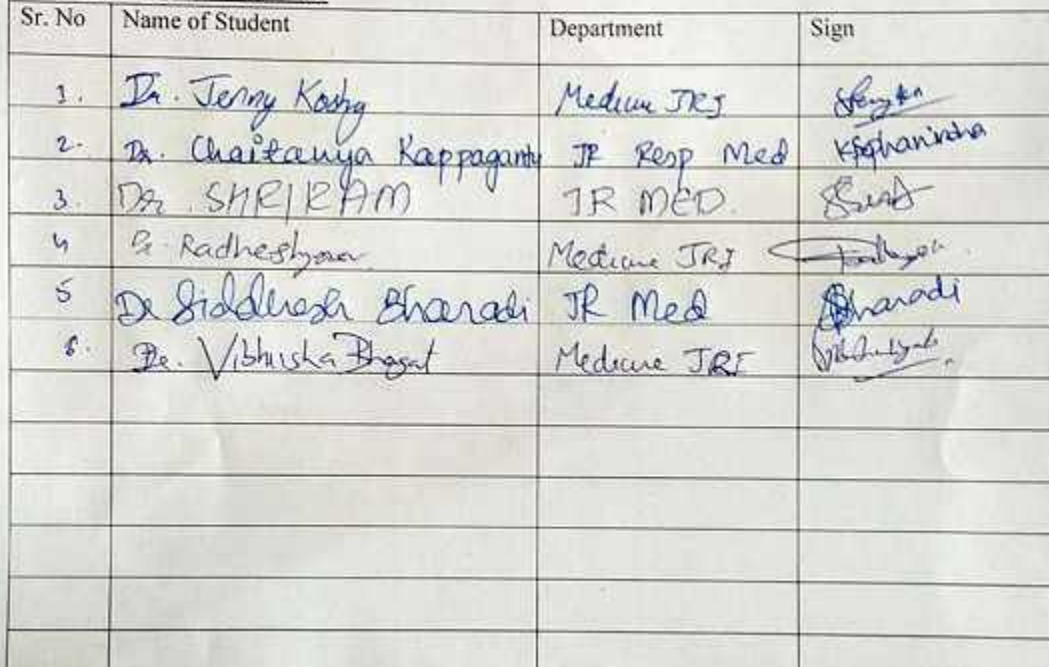 Sr. No Name of Student Department Sign
1. Dr. Jenny Koshy Medicine JR1
2. Dr. Chaitanya Kappaganty JR Resp Med Kphanindha
3. Dr. SHRIRAM JR MED.
4 Dr. Radheshyam Medicine JR1
5 Dr Siddhesh Bharadi JR Med Bharadi
6. Dr. Vibhusha Bhagat Medicine JR1